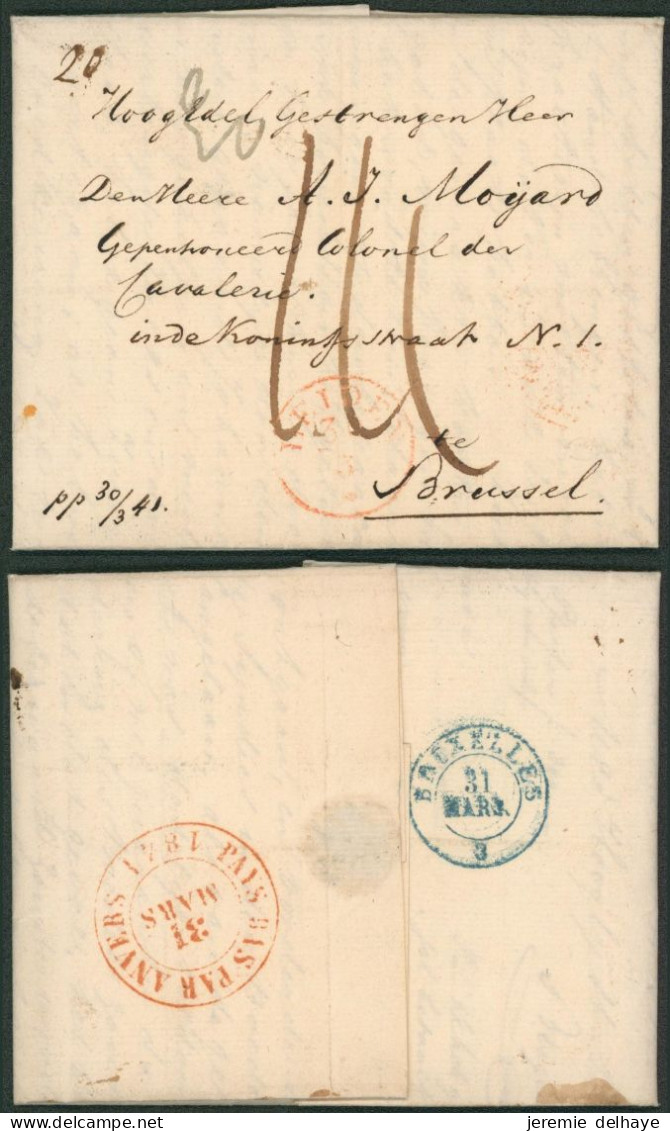 20
20
HoogEdel Gestrengen Heer
Den Heere A. J. Moÿard
Gepensioneerd Colonel der
Cavalerie.
in de Koningsstraat N. 1.
te
Brussel.
LEIDEN
pp 30/3 41.
BRUXELLES
31
MARS
3
1841 PAYS-BAS PAR ANVERS
31
MARS
www.delcampe.net
jeremie delhaye